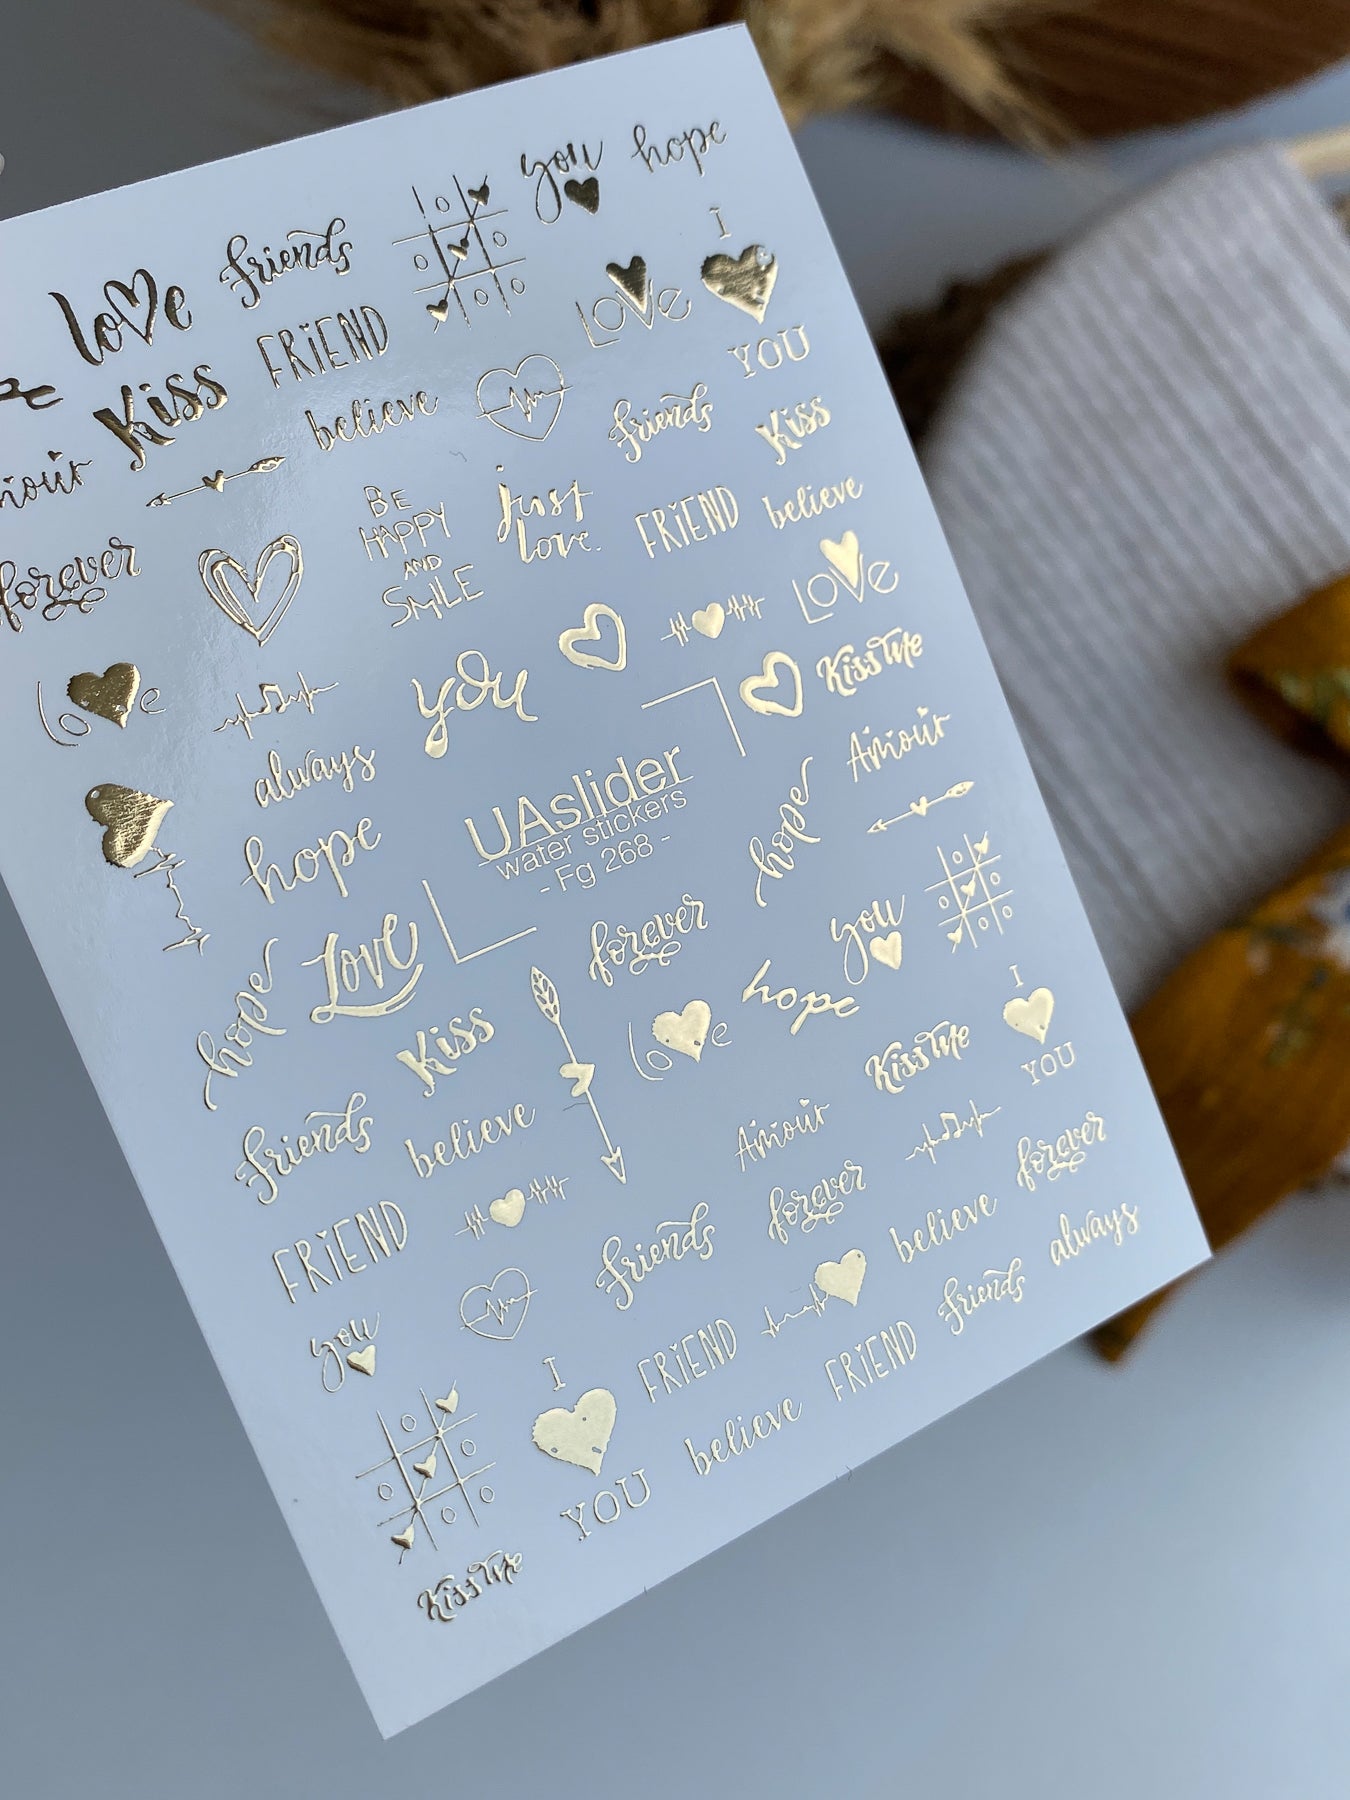 you hope
love friends I
Kiss FRiEND LOVe YOU
believe friends Kiss
Amour
BE
HAPPY
AND
SMiLE
just
love.
FRiEND believe
forever
LOVe
love you Kiss Me
always Amour
UAslider
water stickers
- Fg 268 -
hope hope
Love forever you
hope Kiss love hope I
YOU
Kiss Me
friends believe Amour
forever
FRiEND friends forever believe always
you FRiEND friends
I
YOU
believe FRiEND
Kiss Me